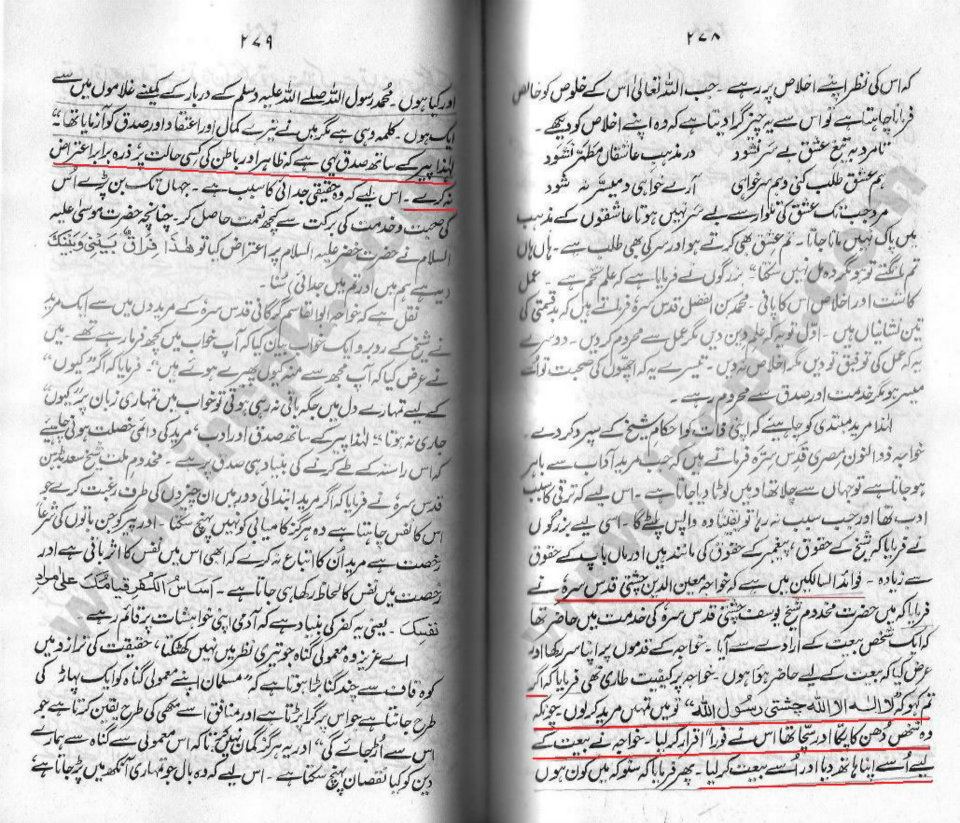 ۲۷۸
کہ اس کی نظر اپنے اخلاص پر رہے ۔ جب اللہ تعالیٰ اس کے خلوص کو خالص
فرمانا چاہتا ہے تو اس سے یہ چیز گرا دیتا ہے کہ وہ اپنے اخلاص کو دیکھے ۔
تا مرد بہ تیغ عشق بے سر نشود در مذہب عاشقاں مطہر نشود
ہم عشق طلب کنی و ہم سر خواہی آرے خواہی و میسر نہ شود
مرد جب تک عشق کی تلوار سے بے سر نہیں ہوتا عاشقوں کے مذہب
میں پاک نہیں مانا جاتا ۔ تم عشق بھی کرتے ہو اور سر کی بھی طلب ہے ۔ ہاں ہاں
تم مانگتے تو ہو مگر وہ مل نہیں سکتا“ بزرگوں نے فرمایا ہے کہ علم تخم ہے ۔ عمل
کاشت اور اخلاص اس کا پانی ۔ محمد بن الفضل قدس سرہٗ فرماتے ہیں کہ بدقسمتی کی
تین نشانیاں ہیں ۔ اول تو یہ کہ علم دین دیں مگر عمل سے محروم کر دیں ۔ دوسرے
یہ کہ عمل کی توفیق تو دیں مگر اخلاص نہ دیں ۔ تیسرے یہ کہ اچھوں کی صحبت تو اسے
میسر ہو مگر خدمت اور صدق سے محروم رہے ۔
لہذا مرید مبتدی کو چاہیے کہ اپنی ذات کو احکام شیخ کے سپرد کر دے ۔
خواجہ ذو النون مصری قدس سرہٗ فرماتے ہیں کہ جب مرید آداب سے باہر
ہو جاتا ہے تو جہاں سے چلا تھا وہیں لوٹا دیا جاتا ہے ۔ اس لیے کہ ترقی کا سبب
ادب تھا اور جب سبب نہ رہا تو یقیناً وہ واپس پلٹے گا ۔ اسی لیے بزرگوں
نے فرمایا کہ شیخ کے حقوق ، پیغمبر کے حقوق کی مانند ہیں اور ماں باپ کے حقوق
سے زیادہ ۔ فوائد السالکین میں ہے کہ خواجہ معین الدین چشتی قدس سرہٗ نے
فرمایا کہ میں حضرت مخدوم شیخ یوسف چشتی قدس سرہٗ کی خدمت میں حاضر تھا
کہ ایک شخص بیعت کے ارادے سے آیا ۔ خواجہ کے قدموں پر اپنا سر رکھا اور
عرض کیا کہ بیعت کے لیے حاضر ہوا ہوں ۔ خواجہ پر کیفیت طاری تھی فرمایا کہ اگر
تم کہو کہ لا الہ الا اللہ چشتی رسول اللہ “ تو میں تمہیں مرید کر لوں چونکہ
وہ شخص دھن کا پکا اور سچا تھا اس نے فوراً اقرار کر لیا ۔ خواجہ نے بیعت کے
لیے اسے اپنا ہاتھ دیا اور اسے بیعت کر لیا ۔ پھر فرمایا کہ سنو کہ میں کون ہوں
۲۷۹
اور کیا ہوں ۔ محمد رسول اللہ صلے اللہ علیہ وسلم کے دربار کے کمینے غلاموں میں سے
ایک ہوں ۔ کلمہ وہی ہے مگر میں نے تیرے کمال اور اعتقاد اور صدق کو آزمایا تھا “
لہٰذا پیر کے ساتھ صدق یہی ہے کہ ظاہر اور باطن کی کسی حالت پر ذرہ برابر اعتراض
نہ کرے ۔ اس لیے کہ وہ حقیقی جدائی کا سبب ہے ۔ جہاں تک بن پڑے اس
کی صحبت و خدمت کی برکت سے کچھ نعمت حاصل کر ۔ چنانچہ حضرت موسیٰ علیہ
السلام نے حضرت خضر علیہ السلام پر اعتراض کیا تو ھٰذَا فِرَاقُ بَیْنِیْ وَبَیْنِكَ
(یہ ہے ہم میں اور تم میں جدائی) سنا ۔
نقل ہے کہ خواجہ ابو القاسم گرگانی قدس سرہٗ کے مریدوں میں سے ایک مرید
نے شیخ کے روبرو ایک خواب بیان کیا کہ آپ خواب میں مجھ سے فرما رہے تھے ۔ میں
نے عرض کیا کہ آپ مجھ سے منہ کیوں پھیرے ہوئے ہیں“ ۔ فرمایا کہ اگر ”کیوں“
کے لیے تمہارے دل میں جگہ باقی نہ رہی ہوتی تو خواب میں تمہاری زبان پر ”کیوں“
جاری نہ ہوتا “ لہذا پیر کے ساتھ صدق اور ادب، مرید کی دائمی خصلت ہونی چاہیے
کہ اس راستہ کے طے کرنے کی بنیاد ہی صدق پر ہے ۔ مخدوم ملت شیخ سعد الدین
قدس سرہٗ نے فرمایا کہ اگر مرید ابتدائی دور میں ان چیزوں کی طرف رغبت کرے جو
اس کا نفس چاہتا ہے وہ ہرگز کامیابی کو نہیں پہنچ سکتا ۔ اور پیر کو جن باتوں کی شرعاً
رخصت ہے مرید ان کا اتباع نہ کرے کہ ابھی اس میں نفس کا اثر باقی ہے اور
رخصت میں نفس کا لحاظ رکھا ہی جاتا ہے ۔ اساس الکفر قیامك علیٰ مراد
نفسك ۔ یعنی یہ کفر کی بنیاد ہے کہ آدمی اپنی خواہشات پر قائم رہے
اے عزیز وہ معمولی گناہ جو تیری نظر میں نہیں کھٹکتا، حقیقت کی ترازو میں
کوہ قاف سے چند گنا بڑا ہوتا ہے کہ ”مسلمان اپنے معمولی گناہ کو ایک پہاڑ کی
طرح جانتا ہے جو اس پر گرا پڑتا ہے اور منافق اسے مکھی کی طرح یقین کرتا ہے جو
اس سے اڑ جائے گی“ اور یہ ہرگز گمان نہیں کرتا کہ اس معمولی سے گناہ سے ہمارے
دین کو کیا نقصان پہنچ سکتا ہے ۔ اس لیے کہ وہ بال جو تمہاری آنکھ میں پڑ جاتا ہے،